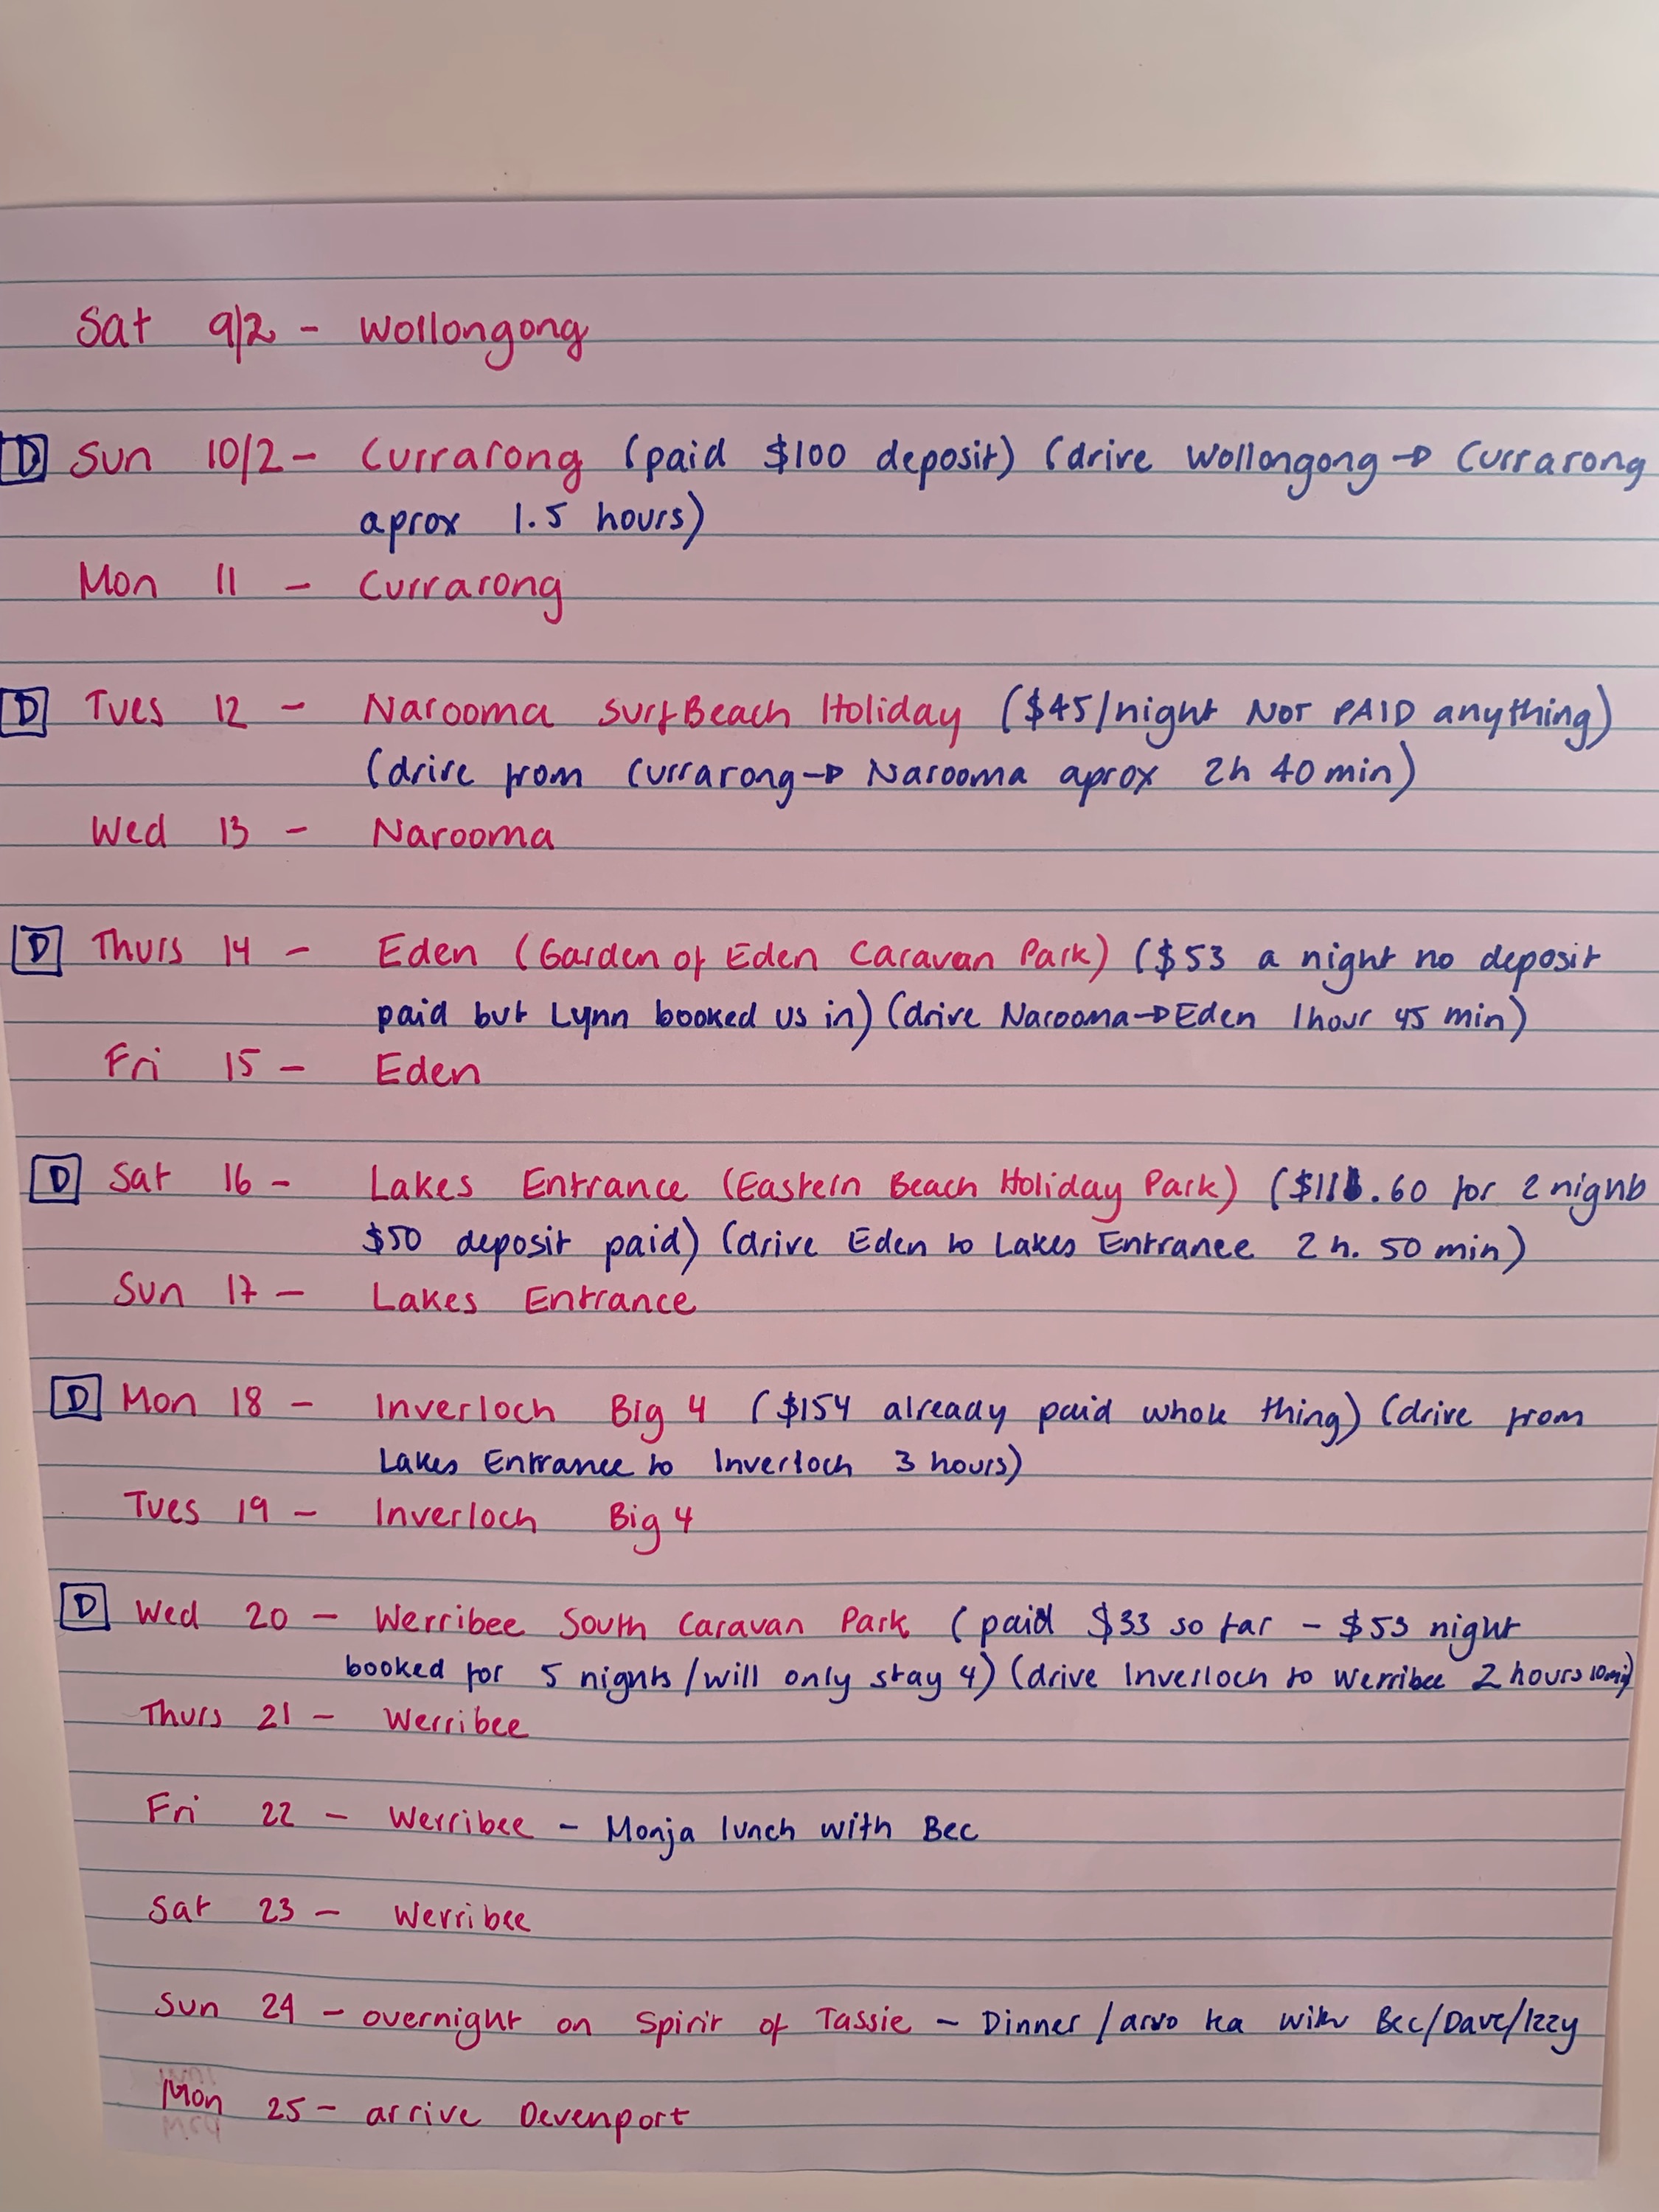 Sat 9/2 - Wollongong
D Sun 10/2 - Currarong (paid $100 deposit) (drive Wollongong → Currarong
aprox 1.5 hours)
Mon 11 - Currarong
D Tues 12 - Narooma Surf Beach Holiday ($45/night NOT PAID anything)
(drive from Currarong → Narooma aprox 2h 40 min)
Wed 13 - Narooma
D Thurs 14 - Eden (Garden of Eden Caravan Park) ($53 a night no deposit
paid but Lynn booked us in) (drive Narooma → Eden 1hour 45 min)
Fri 15 - Eden
D Sat 16 - Lakes Entrance (Eastern Beach Holiday Park) ( .60 for 2 nights
$50 deposit paid) (drive Eden to Lakes Entrance 2 h. 50 min)
Sun 17 - Lakes Entrance
D Mon 18 - Inverloch Big 4 ($154 already paid whole thing) (drive from
Lakes Entrance to Inverloch 3 hours)
Tues 19 - Inverloch Big 4
D Wed 20 - Werribee South Caravan Park (paid $33 so far - $53 night
booked for 5 nights/will only stay 4) (drive Inverloch to Werribee 2 hours 10min)
Thurs 21 - Werribee
Fri 22 - Werribee - Monja lunch with Bec
Sat 23 - Werribee
Sun 24 - overnight on Spirit of Tassie - Dinner/arvo tea with Bec/Dave/Izzy
Mon 25 - arrive Devenport